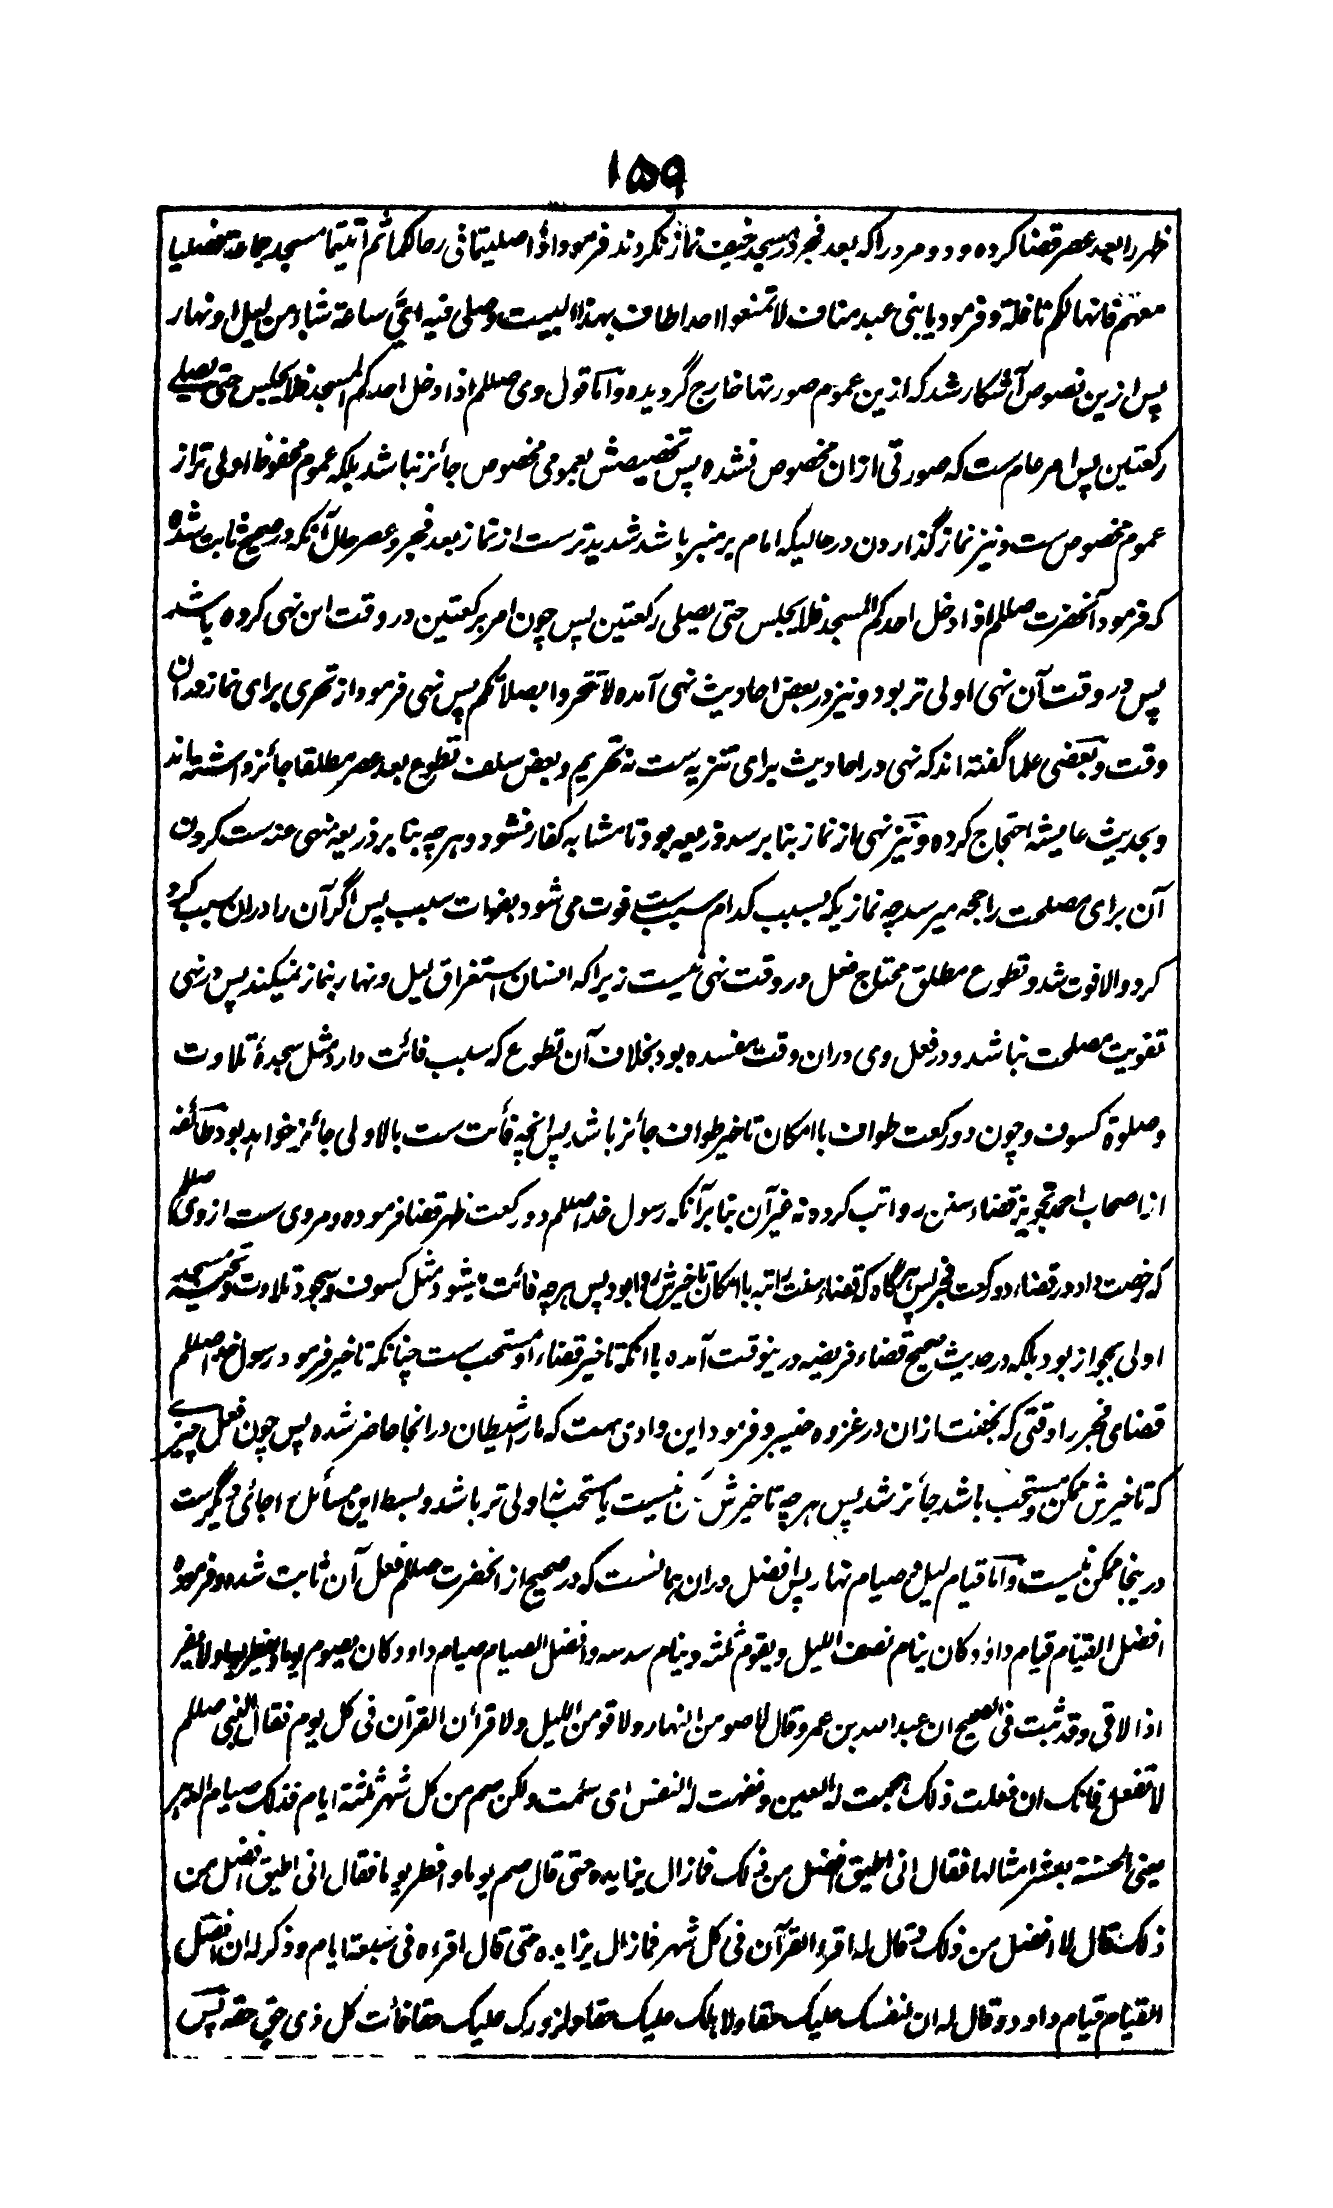 ۱۵۹
ظهر را بعد عصر قضا کرده و دو مرد را که بعد فجر در مسجد خیف نماز نکردند فرمود اذا صلیتما فی رحالکما ثم اتیتما مسجد جماعة فصلیا
معهم فانها لکم نافلة و فرمود یا بنی عبد مناف لا تمنعوا احدا طاف بهذا البیت و صلی فیه ایّ ساعة شاء من لیل او نهار
پس ازین نصوص آشکار شد که ازین عموم صورتها خارج گردیده و اما قول وی صللم اذا دخل احدکم المسجد فلا یجلس حتی یصلے
رکعتین پس امر عام ست که صورتی ازان مخصوص نشده پس تخصیصش بعمومی مخصوص جائز نباشد بلکه عموم محفوظ اولی تر از
عموم مخصوص ست و نیز نماز گذاردن درحالیکه امام بر منبر باشد شدید ترست از نماز بعد فجر و عصر حال آنکه در صحیح ثابت شده
که فرمود آنحضرت صللم اذا دخل احدکم المسجد فلا یجلس حتی یصلی رکعتین پس چون امر برکعتین در وقت این نهی کرده باشد
پس در وقت آن نهی اولی تر بود و نیز در بعض احادیث نهی آمده لا تتحروا بصلاتکم پس نهی فرمود از تحری برای نماز دران
وقت و بعضی علما گفته اند که نهی در احادیث برای تنزیه ست نه تحریم و بعض سلف تطوع بعد عصر مطلقا جائز داشته اند
و بحدیث عایشه احتجاج کرده و نیز نهی از نماز بنا بر سد ذریعه بود تا مشابه کفار نشود و هر چه بنا بر ذریعه منهی عنه ست کردن
آن برای مصلحت راجحه میرسد چه نمازیکه بسبب کدام سبب ست فوت می شود بفوات سبب پس اگر آن را دران سبب کرد
کرد والا فوت شد و تطوع مطلق محتاج فعل در وقت نهی نیست زیرا که انسان استغراق لیل و نهار بنماز نمیکند پس در نهی
تفویت مصلحت نباشد و در فعل وی دران وقت مفسده بود بخلاف آن تطوع که سبب فائت دارد مثل سجدۀ تلاوت
و صلوة کسوف و چون دو رکعت طواف با امکان تاخیر طواف جائز باشد پس انچه فائت ست بالاولی جائز خواهد بود طائفه
از اصحاب احمد تجویز قضاء سنن رواتب کرده نه غیر آن بنا بر آنکه رسول خدا صللم دو رکعت ظهر قضا فرموده و مروی ست از وی صللم
که رخصت داد در قضاء دو رکعت فجر پس هرگاه که قضاء سنت راتبه با امکان تاخیرش روا بود پس هر چه فائت میشود مثل کسوف و سجود تلاوت و تحیت مسجد
اولی بجواز بود بلکه در حدیث صحیح قضاء فریضه درینوقت آمده با آنکه تاخیر قضاء او مستحب ست چنانکه تاخیر فرمود رسول خدا صللم
قضای فجر را وقتی که بخفت ازان در غزوه خیبر و فرمود این وادی ست که مارا شیطان در انجا حاضر شده پس چون فعل چیزے
که تاخیرش ممکن و مستحب باشد جائز شد پس هر چه تاخیرش نیست یا مستحب نه اولی تر باشد و بسط این مسائل را جائی دیگرست
درینجا ممکن نیست و اما قیام لیل و صیام نهار پس افضل دران همانست که در صحیح از انحضرت صللم فعل آن ثابت شده و فرموده
افضل القیام قیام داؤد کان ینام نصف اللیل و یقوم ثلثه و ینام سدسه و افضل الصیام صیام داود کان یصوم یوما و یفطر یوما و لا یفر
اذا لاقی و قد ثبت فی الصحیح ان عبد الله بن عمرو قال لاصومن النهار و لاقومن اللیل و لاقرأن القرآن فی کل یوم فقال النبی صللم
لا تفعل فانک ان فعلت ذلک هجمت له العین و نفهت له النفس ای سئمت ولکن صم من کل شهر ثلثة ایام فذلک صیام الدهر
یعنی الحسنة بعشر امثالها فقال انی اطیق افضل من ذلک فما زال یزایده حتی قال صم یوما و افطر یوما فقال انی اطیق افضل من
ذلک قال لا افضل من ذلک و قال له اقرء القرآن فی کل شهر فما زال یزایده حتی قال اقراه فی سبعة ایام و ذکر له ان افضل
القیام قیام داود و قال له ان لنفسک علیک حقا و لاهلک علیک حقا و لزورک علیک حقا فات کل ذی حق حقه پس